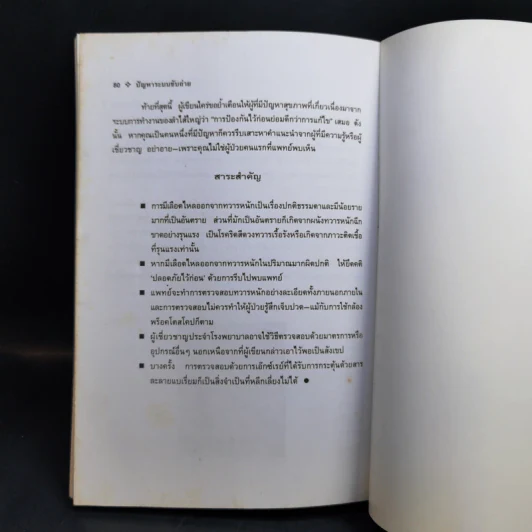 80 ❖ ปัญหาระบบขับถ่าย
ท้ายที่สุดนี้ ผู้เขียนใคร่ขอย้ำเตือนให้ผู้ที่มีปัญหาสุขภาพที่เกี่ยวเนื่องมาจาก
ระบบการทำงานของลำไส้ใหญ่ว่า "การป้องกันไว้ก่อนย่อมดีกว่าการแก้ไข" เสมอ ดัง
นั้น หากคุณเป็นคนหนึ่งที่มีปัญหาก็ควรรีบเสาะหาคำแนะนำจากผู้ที่มีความรู้หรือผู้
เชี่ยวชาญ อย่าอาย—เพราะคุณไม่ใช่ผู้ป่วยคนแรกที่แพทย์พบเห็น
สาระสำคัญ
■ การมีเลือดไหลออกจากทวารหนักเป็นเรื่องปกติธรรมดาและมีน้อยราย
มากที่เป็นอันตราย ส่วนที่มักเป็นอันตรายก็เกิดจากผนังทวารหนักฉีก
ขาดอย่างรุนแรง เป็นโรคริดสีดวงทวารเรื้อรังหรือเกิดจากภาวะติดเชื้อ
ที่รุนแรงเท่านั้น
■ หากมีเลือดไหลออกจากทวารหนักในปริมาณมากผิดปกติ ให้ยึดคติ
'ปลอดภัยไว้ก่อน' ด้วยการรีบไปพบแพทย์
■ แพทย์จะทำการตรวจสอบทวารหนักอย่างละเอียดทั้งภายนอกภายใน
และการตรวจสอบไม่ควรทำให้ผู้ป่วยรู้สึกเจ็บปวด—แม้กับการใช้กล้อง
พร็อคโตสโคปก็ตาม
■ ผู้เชี่ยวชาญประจำโรงพยาบาลอาจใช้วิธีตรวจสอบด้วยมาตรการหรือ
อุปกรณ์อื่นๆ นอกเหนือจากที่ผู้เขียนกล่าวเอาไว้พอเป็นสังเขป
■ บางครั้ง การตรวจสอบด้วยการเอ๊กซ์เรย์ที่ได้รับการกระตุ้นด้วยสาร
ละลายแบเรี่ยมก็เป็นสิ่งจำเป็นที่หลีกเลี่ยงไม่ได้ ●